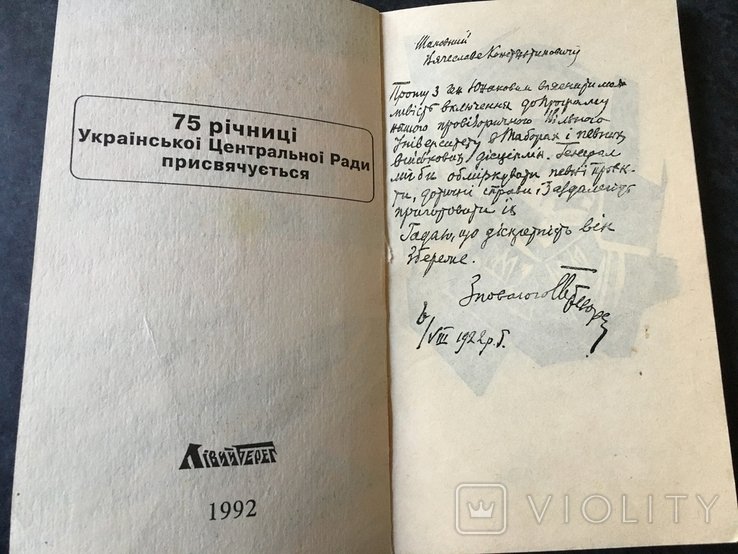 75 річниці
Української Центральної Ради
присвячується
Лівий берег
1992
Шановний
Вячеслава Константиновичу
Прошу з ген Юнаковим вияснити мож
ливість включення до програму
нашого провізоричного Вільного
Університету в Таборах і певних
військових дісціплін. Генерал
міг би обміркувати певні проек
ти, дотичні справи, заздалегідь
приготовити їх
Гадаю, що діскретність він
збереже.
З повагою
6/VIII 1922 р.
VIOLITY